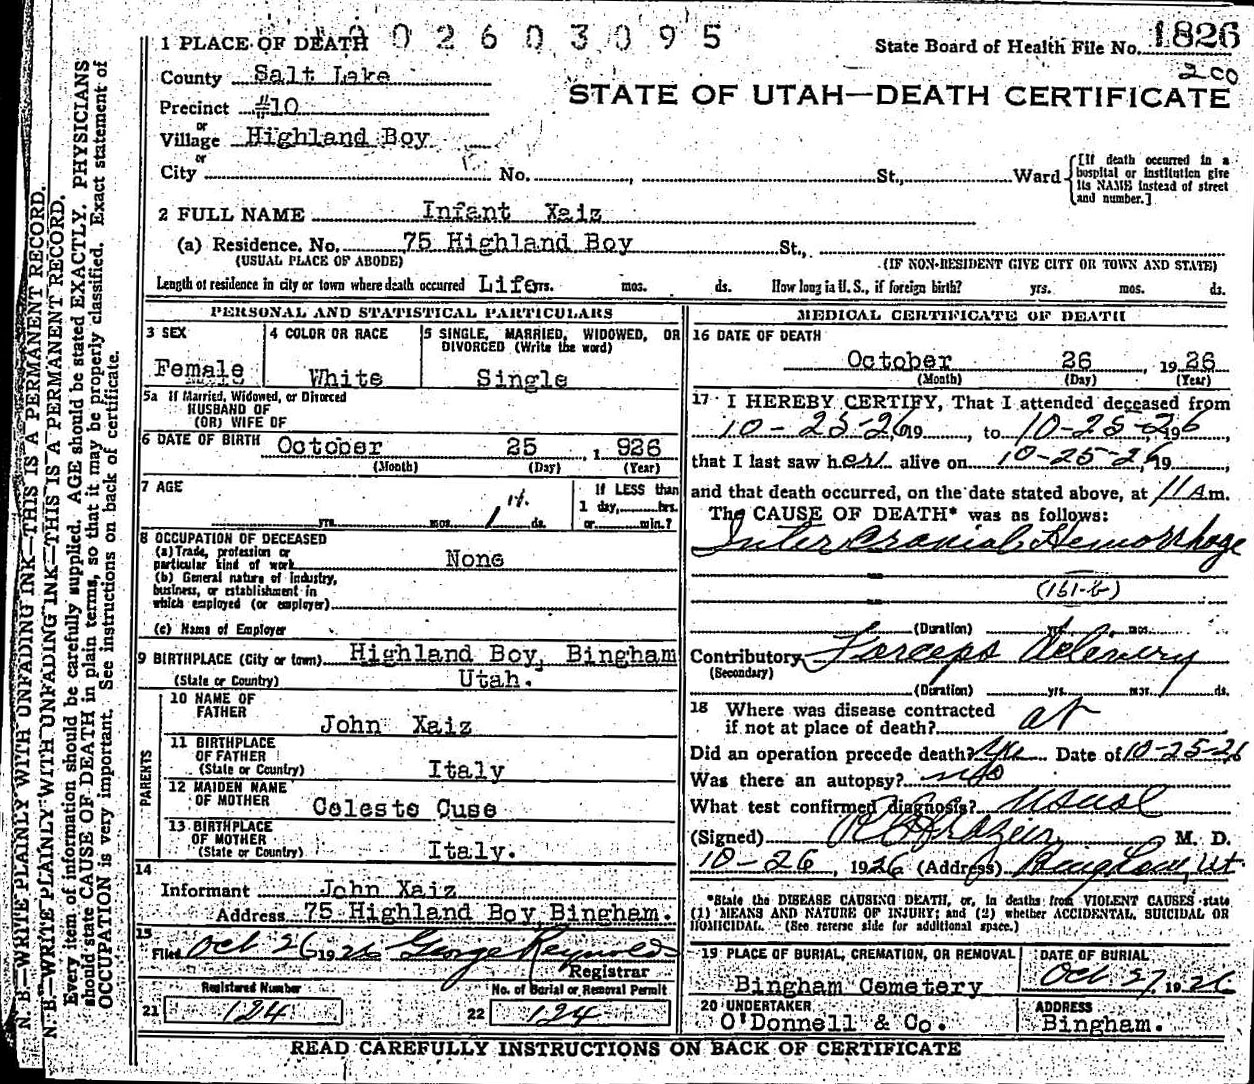 0 0 2 6 0 3 0 9 5
1 PLACE OF DEATH
State Board of Health File No. 1826
County Salt Lake
200
STATE OF UTAH—DEATH CERTIFICATE
Precinct #10
or
Village Highland Boy
or
City No. , St., Ward
[If death occurred in a hospital or institution give its NAME instead of street and number.]
2 FULL NAME Infant Xaiz
(a) Residence, No. 75 Highland Boy St.,
(USUAL PLACE OF ABODE) (IF NON-RESIDENT GIVE CITY OR TOWN AND STATE)
Length of residence in city or town where death occurred Life yrs. mos. ds. How long in U. S., if foreign birth? yrs. mos. ds.
PERSONAL AND STATISTICAL PARTICULARS
3 SEX
Female
4 COLOR OR RACE
White
5 SINGLE, MARRIED, WIDOWED, OR DIVORCED (Write the word)
Single
5a If Married, Widowed, or Divorced
HUSBAND OF
(OR) WIFE OF
6 DATE OF BIRTH October 25 , 1 926
(Month) (Day) (Year)
7 AGE
yrs. mos. 1 ds.
If LESS than
1 day, hrs.
or min.?
8 OCCUPATION OF DECEASED
(a) Trade, profession or
particular kind of work None
(b) General nature of industry,
business, or establishment in
which employed (or employer)
(c) Name of Employer
9 BIRTHPLACE (City or town) Highland Boy, Bingham
(State or Country) Utah.
PARENTS
10 NAME OF
FATHER
John Xaiz
11 BIRTHPLACE
OF FATHER
(State or Country) Italy
12 MAIDEN NAME
OF MOTHER Celeste Cuse
13 BIRTHPLACE
OF MOTHER
(State or Country) Italy.
14
Informant John Xaiz
Address 75 Highland Boy Bingham.
15
Filed Oct 26 1926 George Reynolds
Registrar
Registered Number
21 124
No. of Burial or Removal Permit
22 124
MEDICAL CERTIFICATE OF DEATH
16 DATE OF DEATH
October 26 , 1926
(Month) (Day) (Year)
17 I HEREBY CERTIFY, That I attended deceased from
10-25-26, 19 , to 10-25-26, 19 ,
that I last saw her alive on 10-25-26, 19 ,
and that death occurred, on the date stated above, at 11 A m.
The CAUSE OF DEATH* was as follows:
Inter Cranial Hemorrhage
(161-b)
(Duration) yrs. mos.
Contributory Forceps delivery
(Secondary)
(Duration) yrs. mos. ds.
18 Where was disease contracted
if not at place of death? at
Did an operation precede death? Yes Date of 10-25-26
Was there an autopsy? no
What test confirmed diagnosis? usual
(Signed) Frazier M. D.
10-26, 1926 (Address) Bingham, Ut.
*State the DISEASE CAUSING DEATH, or, in deaths from VIOLENT CAUSES state
(1) MEANS AND NATURE OF INJURY; and (2) whether ACCIDENTAL, SUICIDAL OR
HOMICIDAL. (See reverse side for additional space.)
19 PLACE OF BURIAL, CREMATION, OR REMOVAL
Bingham Cemetery
DATE OF BURIAL
Oct 27, 1926
20 UNDERTAKER
O'Donnell & Co.
ADDRESS
Bingham.
READ CAREFULLY INSTRUCTIONS ON BACK OF CERTIFICATE
N. B.—WRITE PLAINLY WITH UNFADING INK—THIS IS A PERMANENT RECORD.
N. B.—WRITE PLAINLY WITH UNFADING INK—THIS IS A PERMANENT RECORD.
Every item of information should be carefully supplied. AGE should be stated EXACTLY. PHYSICIANS
should state CAUSE OF DEATH in plain terms, so that it may be properly classified. Exact statement of
OCCUPATION is very important. See instructions on back of certificate.